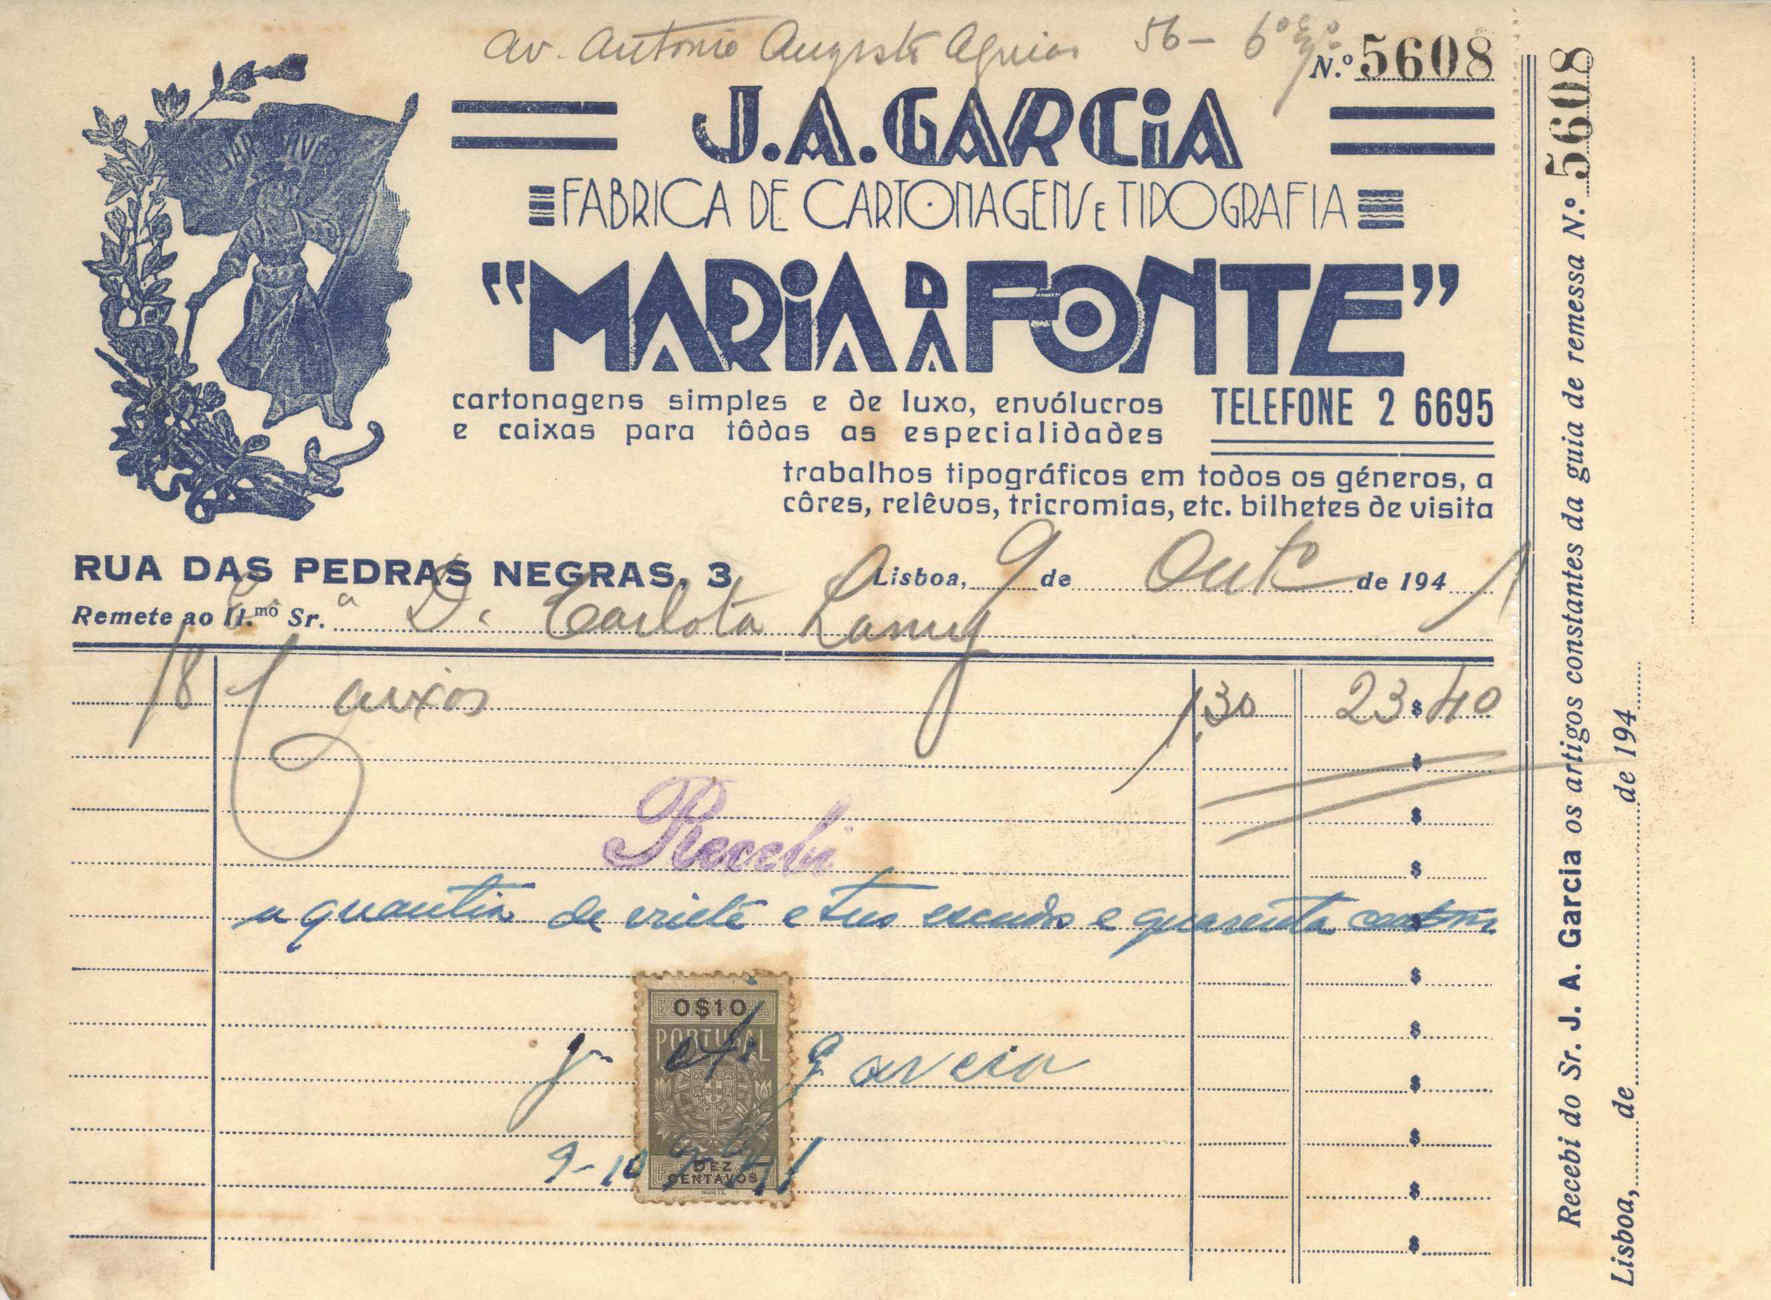 Av. Antonio Augusto Aguiar 56 - 6º
N.º 5608
J. A. GARCIA
FABRICA DE CARTONAGENS E TIPOGRAFIA
"MARIA DA FONTE"
cartonagens simples e de luxo, envólucros
e caixas para tôdas as especialidades
TELEFONE 2 6695
trabalhos tipográficos em todos os géneros, a
côres, relêvos, tricromias, etc. bilhetes de visita
RUA DAS PEDRAS NEGRAS, 3
Lisboa, 9 de Outº de 1941
Remete ao Il.mo Sr.ª D. Carlota
18 Caixas 1,30 23$40
Recebi
a quantia de vinte e tres escudos e quarenta centavos
0$10
PORTUGAL
J A Garcia
9-10-941
DEZ
CENTAVOS
Recebi do Sr. J. A. Garcia os artigos constantes da guia de remessa N.º 5608
Lisboa, de de 194